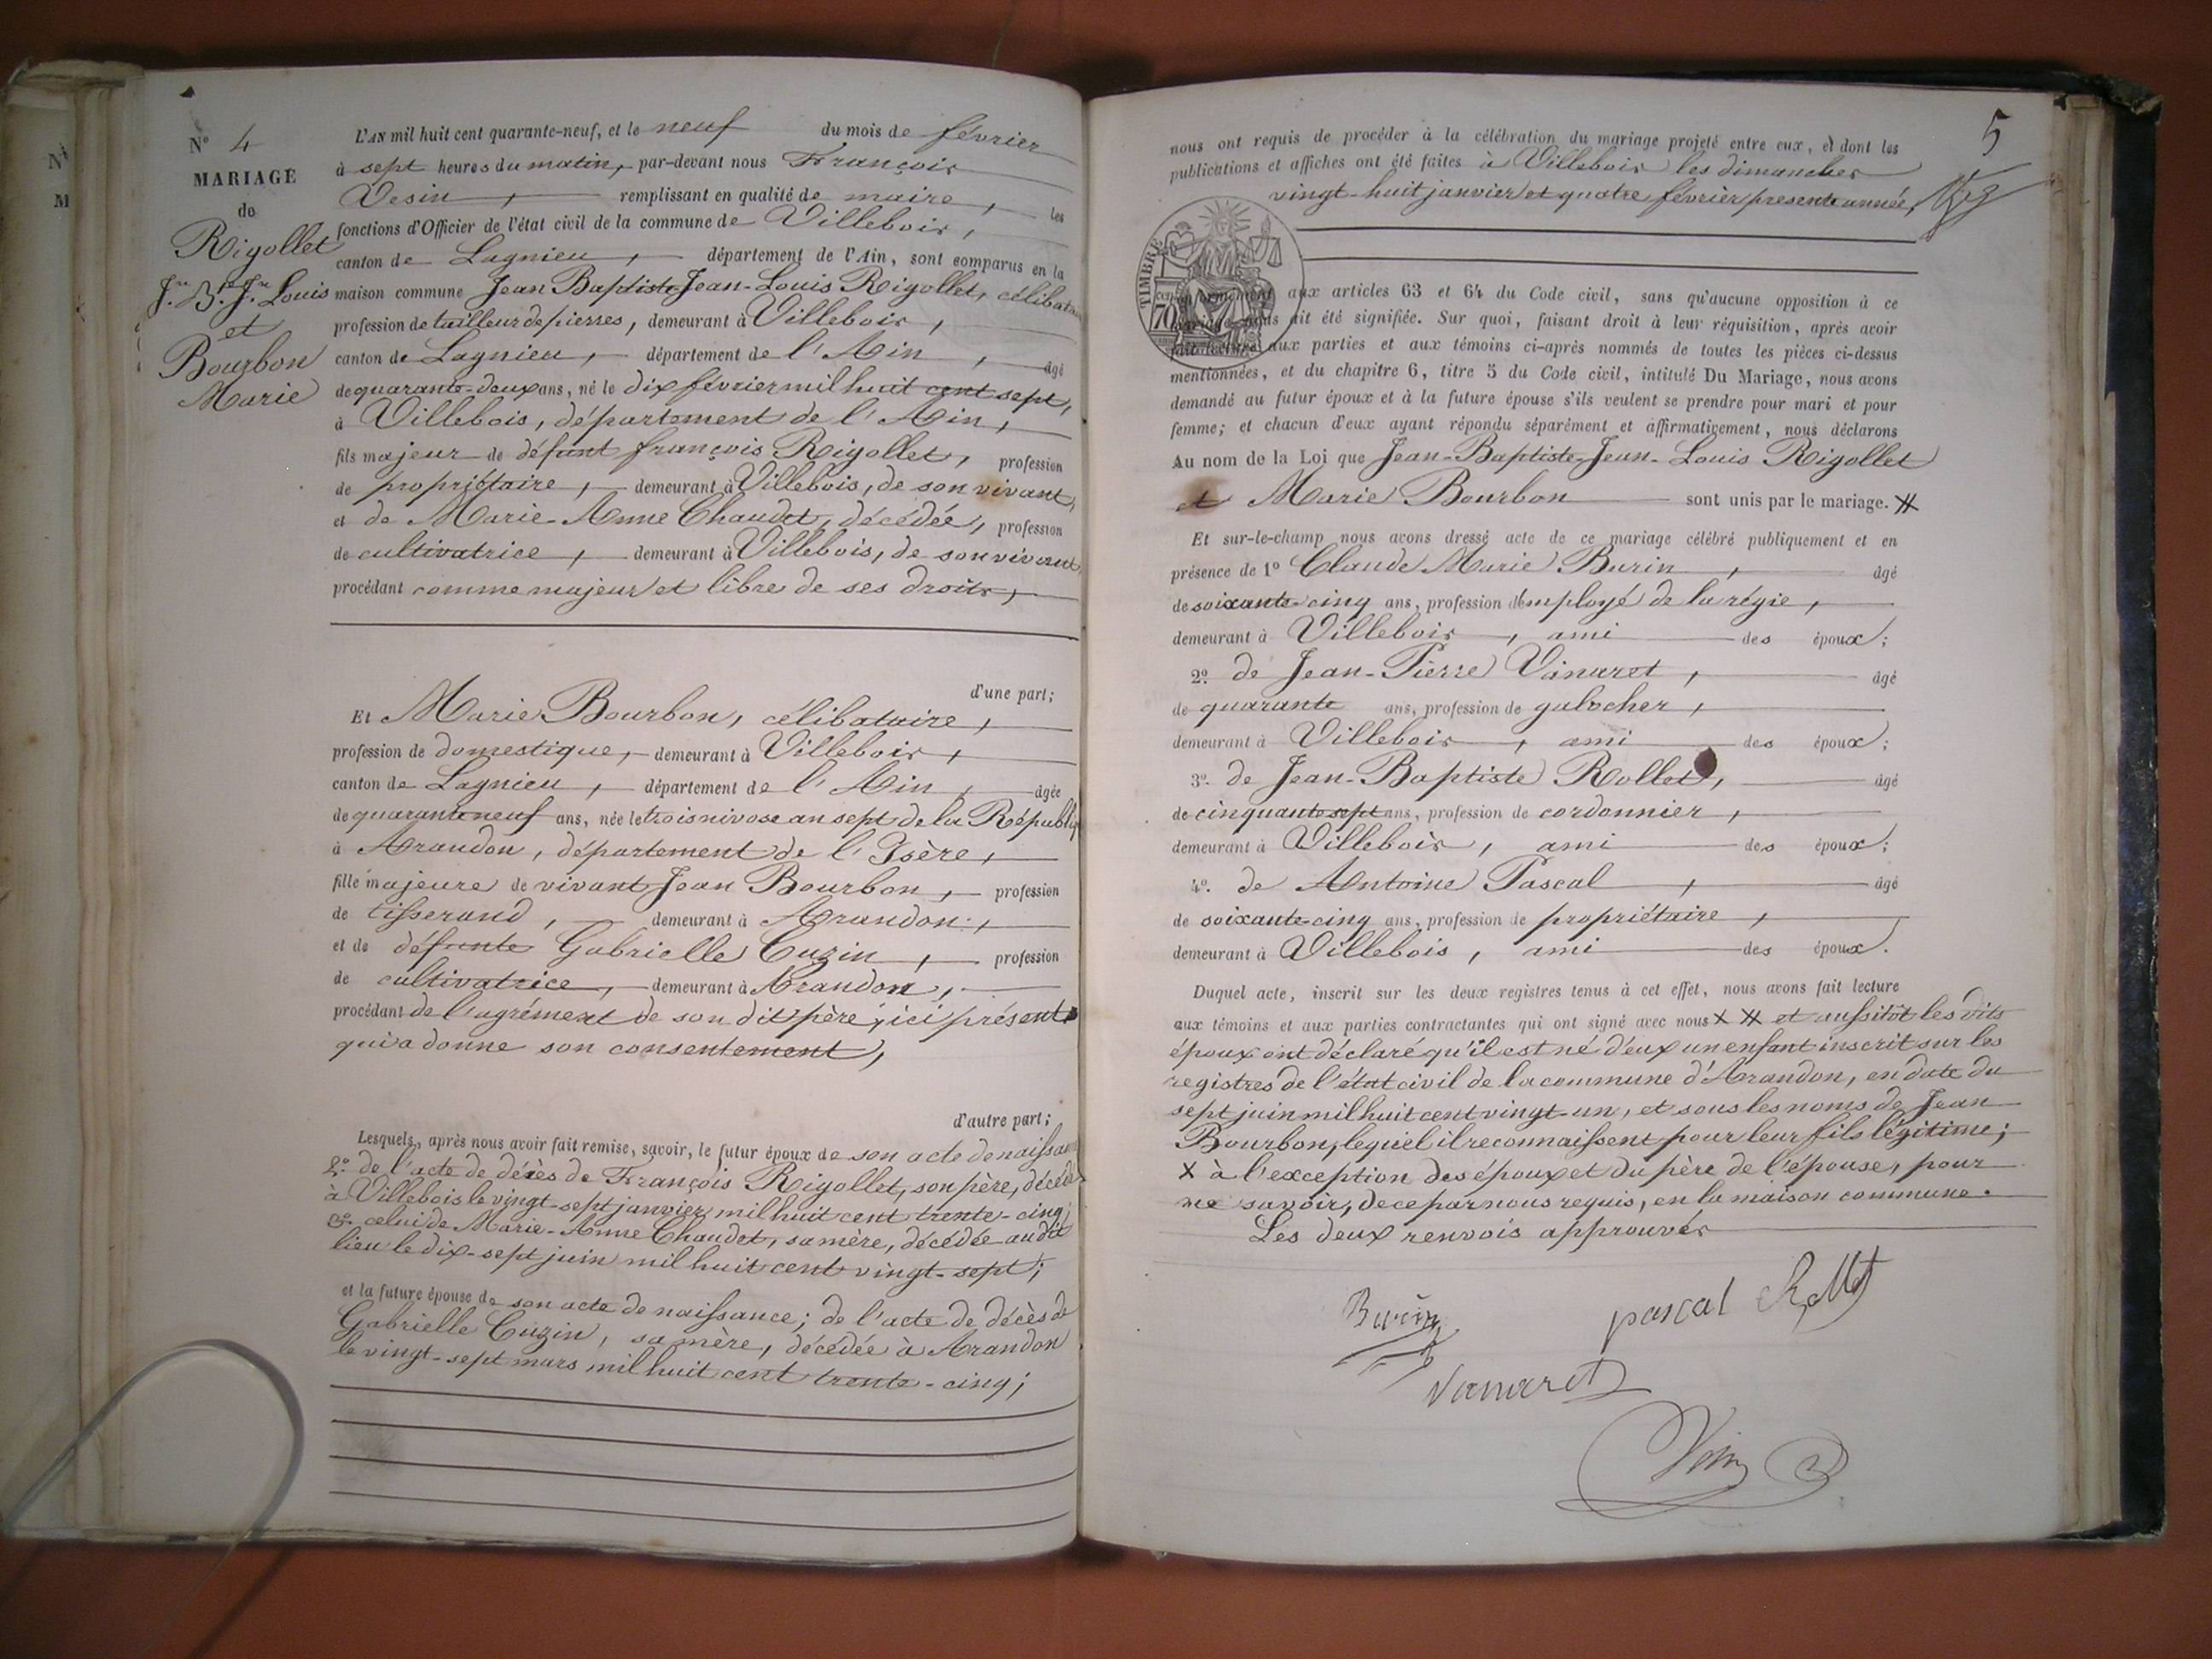 N° 4
MARIAGE
de
Rigollet
Jn. Bte. Jn. Louis
et
Bourbon
Marie
L'AN mil huit cent quarante-neuf, et le neuf du mois de février
à sept heures du matin, par-devant nous François
Vesin, remplissant en qualité de maire, les
fonctions d'Officier de l'état civil de la commune de Villebois,
canton de Lagnieu, département de l'Ain, sont comparus en la
maison commune Jean Baptiste Jean-Louis Rigollet, célibataire
profession de tailleur de pierres, demeurant à Villebois,
canton de Lagnieu, département de l'Ain, âgé
de quarante-deux ans, né le dix février mil huit cent sept,
à Villebois, département de l'Ain,
fils majeur de défunt françois Rigollet, profession
de propriétaire, demeurant à Villebois, de son vivant,
et de Marie-Anne Chaudet, décédée, profession
de cultivatrice, demeurant à Villebois, de son vivant,
procédant comme majeur et libre de ses droits,
d'une part;
Et Marie Bourbon, célibataire,
profession de domestique, demeurant à Villebois,
canton de Lagnieu, département de l'Ain, âgée
de quarante neuf ans, née le trois nivose an sept de la Républiq
à Arandon, département de l'Isère,
fille majeure de vivant Jean Bourbon, profession
de tisserand, demeurant à Arandon,
et de défunte Gabrielle Cuzin, profession
de cultivatrice, demeurant à Arandon,
procédant de l'agrément de son dit père, ici présent
qui a donné son consentement,
d'autre part;
Lesquels, après nous avoir fait remise, savoir, le futur époux de son acte de naissance
2° de l'acte de décès de François Rigollet, son père, décédé
à Villebois le vingt-sept janvier mil huit cent trente-cinq;
3° celui de Marie-Anne Chaudet, sa mère, décédée au dit
lieu le dix-sept juin mil huit cent vingt-sept;
et la future épouse de son acte de naissance; de l'acte de décès de
Gabrielle Cuzin, sa mère, décédée à Arandon
le vingt-sept mars mil huit cent trente-cinq;
5
nous ont requis de procéder à la célébration du mariage projeté entre eux, et dont les
publications et affiches ont été faites à Villebois les dimanches
vingt-huit janvier et quatre février presente année,
TIMBRE
70
conformément aux articles 63 et 64 du Code civil, sans qu'aucune opposition à ce
mariage nous ait été signifiée. Sur quoi, faisant droit à leur réquisition, après avoir
fait lecture aux parties et aux témoins ci-après nommés de toutes les pièces ci-dessus
mentionnées, et du chapitre 6, titre 5 du Code civil, intitulé Du Mariage, nous avons
demandé au futur époux et à la future épouse s'ils veulent se prendre pour mari et pour
femme; et chacun d'eux ayant répondu séparément et affirmativement, nous déclarons
Au nom de la Loi que Jean-Baptiste-Jean-Louis Rigollet
et Marie Bourbon sont unis par le mariage. XX
Et sur-le-champ nous avons dressé acte de ce mariage célébré publiquement et en
présence de 1° Claude Marie Burin, âgé
de soixante-cinq ans, profession d'employé de la régie,
demeurant à Villebois, ami des époux;
2° de Jean-Pierre Vanaret, âgé
de quarante ans, profession de galocher,
demeurant à Villebois, ami des époux;
3° de Jean-Baptiste Rollet, âgé
de cinquante sept ans, profession de cordonnier,
demeurant à Villebois, ami des époux;
4° de Antoine Pascal, âgé
de soixante-cinq ans, profession de propriétaire,
demeurant à Villebois, ami des époux.
Duquel acte, inscrit sur les deux registres tenus à cet effet, nous avons fait lecture
aux témoins et aux parties contractantes qui ont signé avec nous X XX et aussitôt les dits
époux ont déclaré qu'il est né d'eux un enfant inscrit sur les
registres de l'état civil de la commune d'Arandon, en date du
sept juin mil huit cent vingt-un, et sous les noms de Jean
Bourbon, lequel il reconnaissent pour leur fils légitime;
X à l'exception des époux et du père de l'épouse, pour
ne savoir, de ce par nous requis, en la maison commune.
Les deux renvois approuvés
Burin
pascal Rollet
Vanaret
Vesin